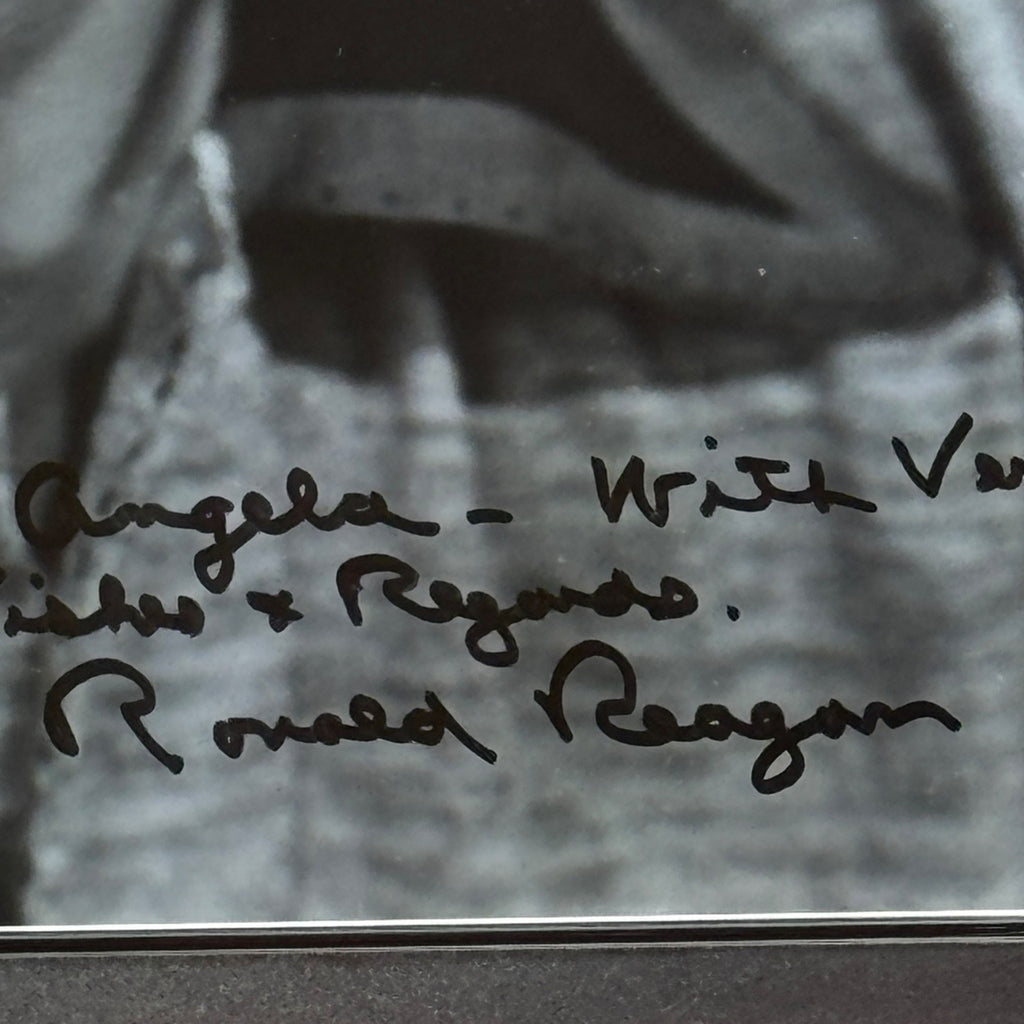 Angela - With Ver
ishes & Regards.
Ronald Reagan